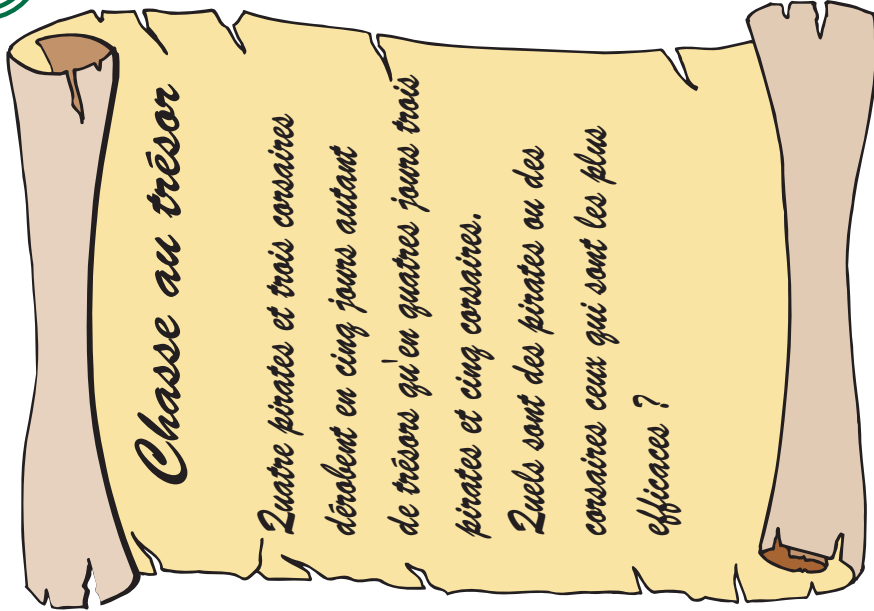 Chasse au trésor
Quatre pirates et trois corsaires
dérobent en cinq jours autant
de trésors qu'en quatres jours trois
pirates et cinq corsaires.
Quels sont des pirates ou des
corsaires ceux qui sont les plus
efficaces ?